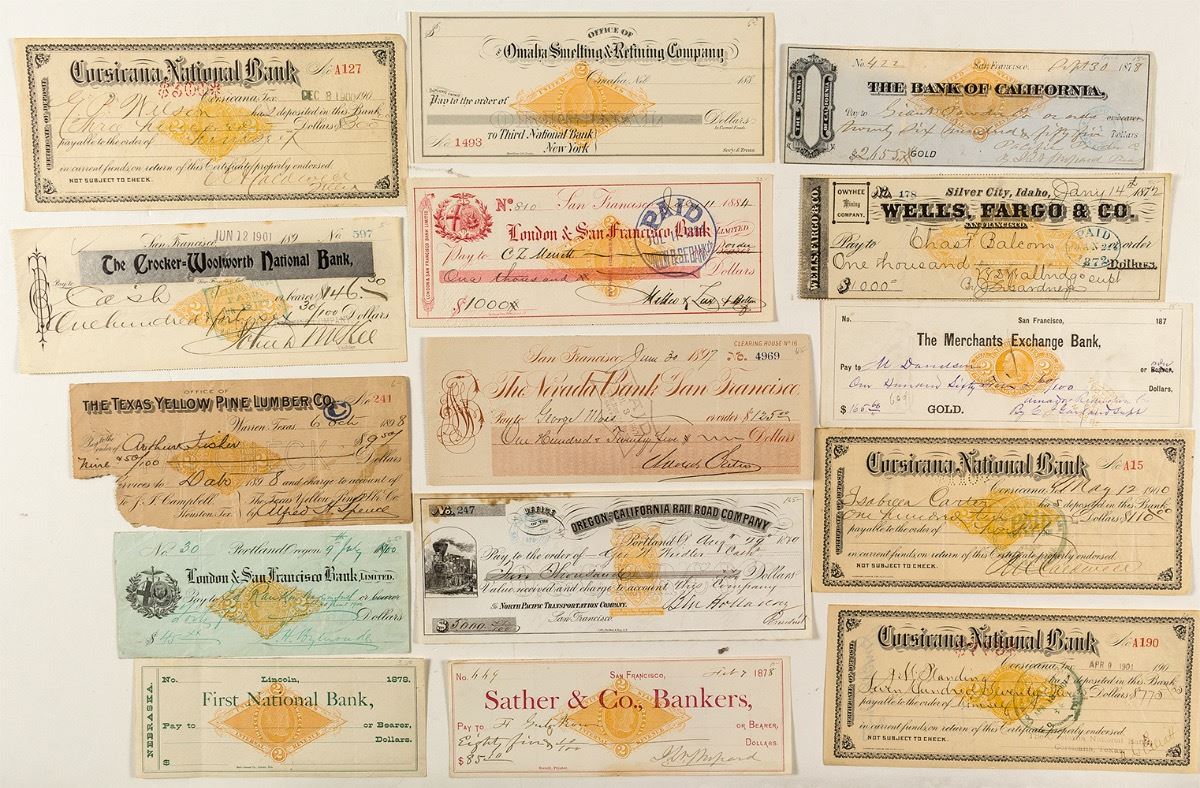 Corsicana National Bank
No A127
$300
Corsicana, Tex. DEC 8 1900 190
G. P. Wilson has deposited in this Bank,
Three hundred Dollars $300
payable to the order of
in current funds on return of this Certificate properly endorsed.
NOT SUBJECT TO CHECK.
San Francisco JUN 12 1901 189 No 597
The Crocker-Woolworth National Bank,
San Francisco, Cal.
Pay to Cash or bearer $146.30
One hundred forty six 30/100 Dollars
John D McKee
OFFICE OF
THE TEXAS YELLOW PINE LUMBER CO.
No 241
Warren, Texas, 6 Oct 1898
Pay to the Order of Arthur Fisker $9.50/
Nine & 50/100 Dollars
services to Date 1898 and charge to account of
To J. F. Campbell, The Texas Yellow Pine Lbr Co.
Houston, Tex. by Alfred H Spence
No 30 Portland Oregon 9th July 1900
London & San Francisco Bank, LIMITED.
Pay to or bearer
Dollars
$45
No. Lincoln, 1878.
NEBRASKA.
First National Bank,
Pay to or Bearer,
Dollars.
$
UNITED STATES INTERNAL REVENUE
2
OFFICE OF
Omaha Smelting & Refining Company
$
Omaha, Neb. 188
Pay to the order of
Dollars
In Current Funds
To Third National Bank
New York
No 1493
Sec'y & Treas.
No. 810 San Francisco July 11 1884
LONDON & SAN FRANCISCO BANK LIMITED
London & San Francisco Bank LIMITED
PAID
Pay to C Z Merritt or order
One thousand Dollars
$1000x
Miller & Lux
CLEARING HOUSE No 16
San Francisco June 30 1897 No. 4969
The Nevada Bank of San Francisco,
Pay to George Mass or order $125.00
One Hundred & Twenty five & Dollars
No. 247
OFFICE OF THE
OREGON AND CALIFORNIA RAIL ROAD COMPANY
Portland O. Augt 29th 1870
Pay to the order of Geo W Weidler Cash
Five Thousand Dollars
Value received and charge to account this Company
To NORTH PACIFIC TRANSPORTATION COMPANY.
San Francisco.
$5000.00
President
No. 449 SAN FRANCISCO, Feb 7 1878
Sather & Co., Bankers,
PAY TO OR BEARER,
Eighty five 00/100 DOLLARS.
$85.00
No. 422 San Francisco, Sept 30 1878
THE BANK OF CALIFORNIA
THE BANK OF CALIFORNIA,
Pay to Giant Powder Co or order or bearer
Twenty Six Hundred & fifty five Dollars
$2655x GOLD
OWYHEE Mining COMPANY.
No. 178 Silver City, Idaho, Jany 14th 1872
WELLS, FARGO & CO.
WELLS, FARGO & CO.
SAN FRANCISCO.
PAID
Pay to Chast Balcom or order
One thousand Dollars.
$1000
No. San Francisco, 187
The Merchants Exchange Bank,
Pay to M Davidson or order
or Bearer,
One Hundred Sixty Five 66/100 Dollars.
$165.66 GOLD.
Corsicana National Bank
No A15
Corsicana, Tex. May 12 1900
Isabella Carter has deposited in this Bank,
Dollars $110.00
payable to the order of
in current funds on return of this Certificate properly endorsed.
NOT SUBJECT TO CHECK.
Corsicana National Bank
No A190
Corsicana, Tex. APR 9 1901 190
has deposited in this Bank
Seven Hundred Seventy Dollars $770
payable to the order of
in current funds on return of this Certificate properly endorsed.
NOT SUBJECT TO CHECK.